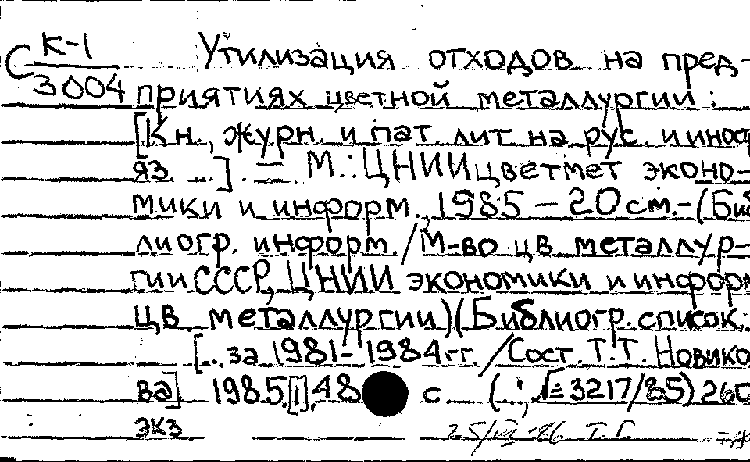 С К-1 Утилизация отходов на пред-
3004 приятиях цветной металлургии:
[Кн., журн. и пат. лит. на рус. и иностр
яз. ...]. — М.: ЦНИИцветмет эконо-
мики и информ., 1985 – 20 см. – (Биб
лиогр. информ. / М-во цв. металлур-
гии СССР, ЦНИИ экономики и информ
цв. металлургии) (Библиогр. список;
[... за 1981-1984 гг. / Сост. Т.Т. Новико
ва] 1985 [1], 48 с. (...; 3217/85) 260
экз 25/VII-86 Т.Г.